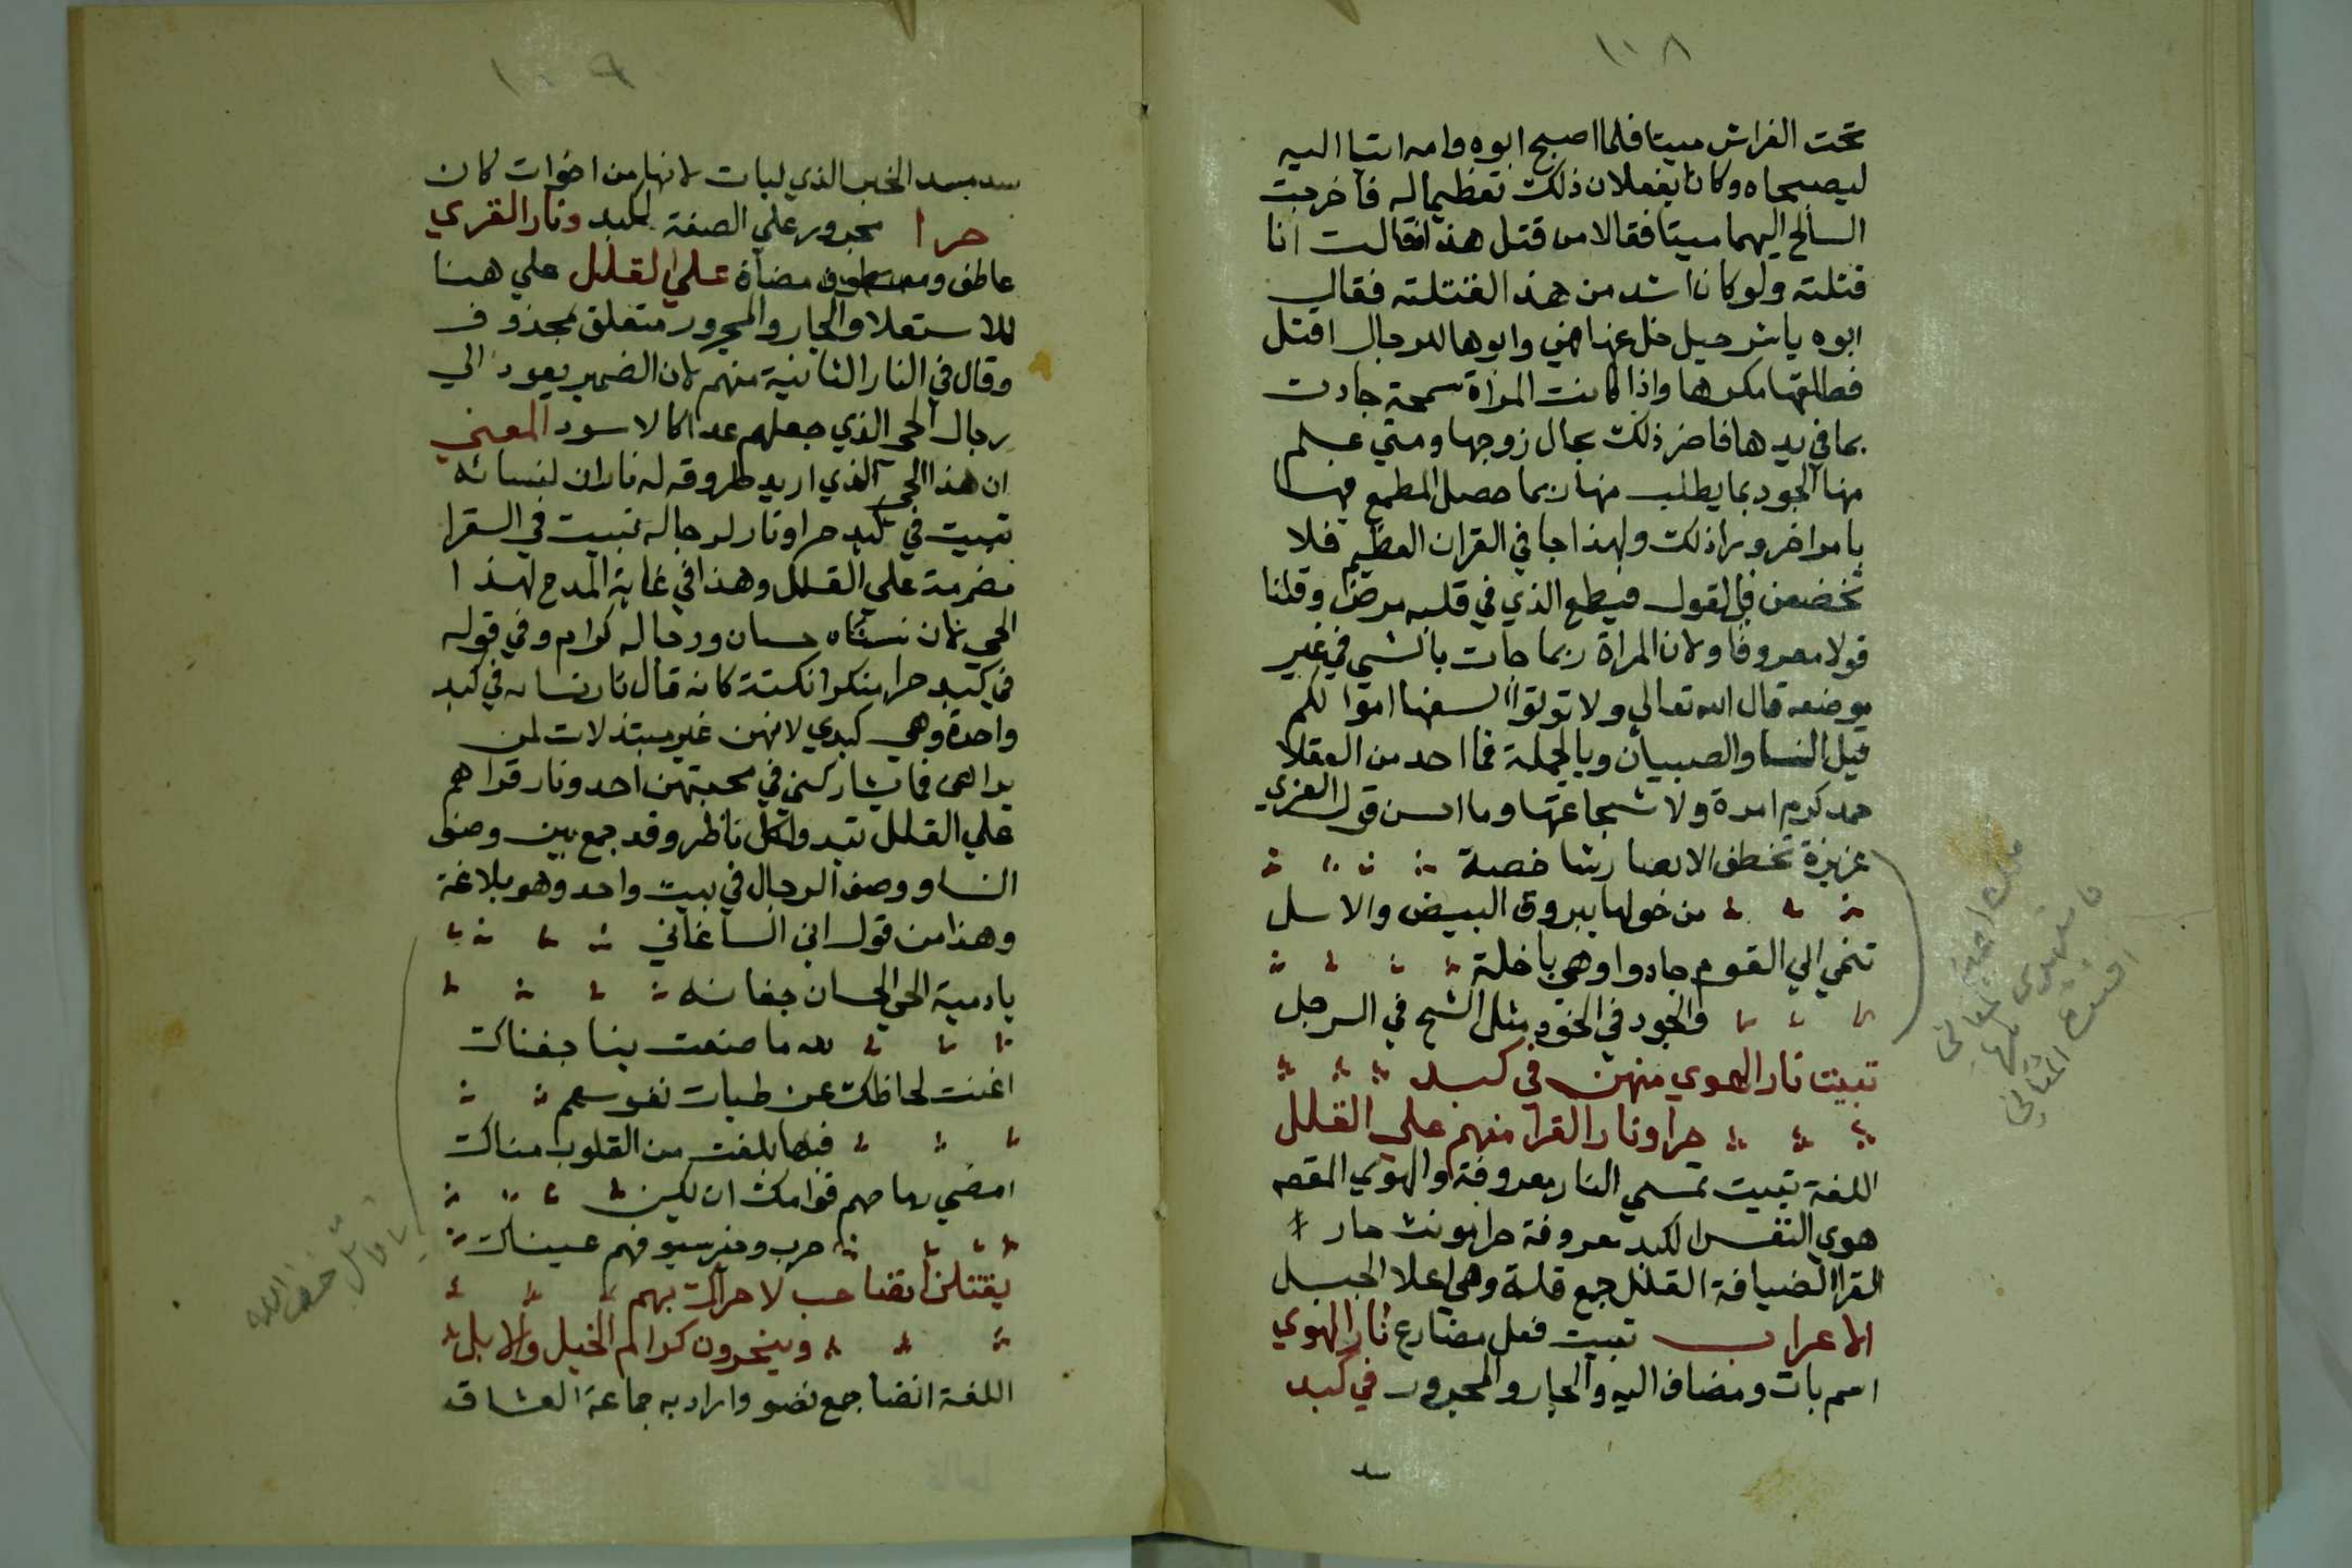 ١٠٨
تحت الفراش ميتا فلما اصبح ابوه وامه اتيا اليه
ليصبحاه وكانا يفعلان ذلك تعظيما له فاخرجت
السالح اليهما ميتا فقالا من قتل هذا فقالت انا
قتلته ولو كان اشد من هذا لقتلته فقال
ابوه يا شرحيل خل عنها فهي وابوها للرجال اقتل
فطلقها مكرها واذا كانت المراة سمحة جادت
بما في يدها فاضر ذلك بحال زوجها ومتي علم
منها الجود بما يطلب منها ربما حصل المطمع فيها
بامر اخر ورا ذلك ولهذا جا في القران العظيم فلا
تخضعن بالقول فيطمع الذي في قلبه مرض وقلنا
قولا معروفا ولان المراة ربما جات بالشي في غير
موضعه قال الله تعالي ولا توتوا السفها اموالكم
قيل النسا والصبيان وبالجملة فما احد من العقلا
حمد كرم امرة ولا شجاعتها وما احسن قول الغزي
عزيزة تخطف الابصار شاخصة
من حولها بيروق البيض والاسل
تنمي الي القوم جادوا وهي باخلة
والجود في الخود مثل الشح في الرجل
تبيت نار الهوي منهن في كبد
حرا ونار القرا منهم علي القلل
اللغة تبيت تمسي النار معروفة والهوي المقصه
هوي النفس الكبد معروفة حرا مونث حار
القرا الضيافة القلل جمع قلة وهي اعلا الجبل
الاعراب تبيت فعل مضارع نار الهوي
اسم بات ومضاف اليه والجار والمجرور في كبد
سد
١٠٩
سد مسد الخبر الذي لبات لانها من اخوات كان
حرا مجرور علي الصفة لكبد ونار القري
عاطف ومعطوف مضاف علي القلل علي هنا
للاستعلا والجار والمجرور متعلق بمحذوف
وقال في النار الثانية منهم لان الضمير يعود الي
رجال الحي الذي جعلهم عدا كالاسود المعني
ان هذا الحي الذي اريد طروقه له ناران لنسائه
تبيت في كبد حرا ونار لرجاله تبيت في القرا
مضرمة علي القلل وهذا في غاية المدح لهذا
الحي لان نساه حسان ورجاله كرام وفي قوله
في كبد حرا منكرا نكتة كانه قال نار نسايه في كبد
واحدة وهي كبدي لانهن غير مبتذلات لمن
يراهن فما يشاركني في محبتهن احد ونار قراهم
علي القلل تبدوا لكل ناظر وقد جمع بين وصف
النسا ووصف الرجال في بيت واحد وهو بلاغة
وهذا من قول ابن الساعاتي
يا دمية الحي الحسان جفانه
لله ما صنعت بنا جفناك
اغنت لحاظك عن ظبات نفوسهم
فبها بلغت من القلوب مناك
امضي رماحهم قوامك ان يكن
حرب وخير سيوفهم عيناك
يقتلن انضا حب لا حراك بهم
وينحرون كرام الخيل والابل
اللغة انضا جمع نضو واراد به جماعة العشاق